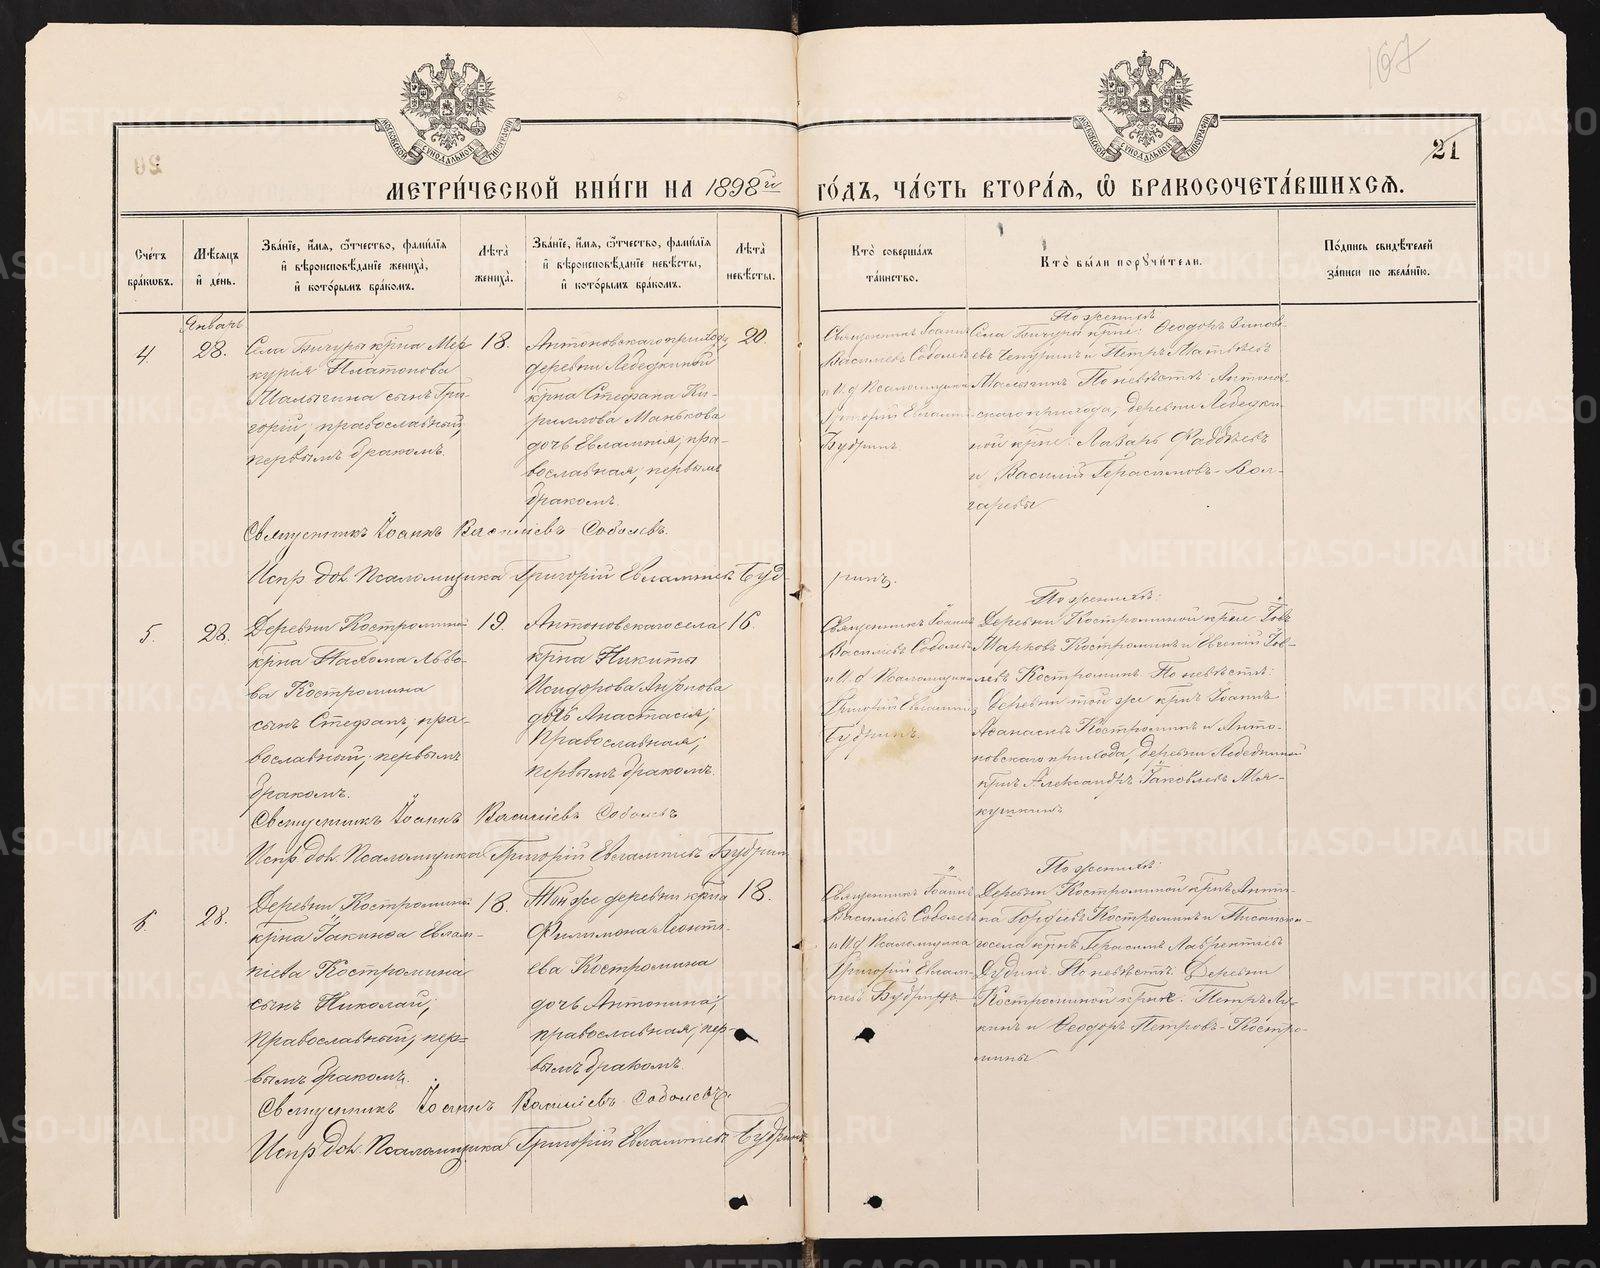 167
21
МЕТРИ́ЧЕСКОЙ КНИ́ГИ НА 1898 й ГО́ДЪ, ЧА́СТЬ ВТОРА́Я, Ѡ БРАКОСОЧЕТА́ВШИХСЯ.
Сче́тъ бра́ковъ.
Мѣ́сяцъ и҆ де́нь.
Зва́нїе, и҆́мя, ѻ҆́тчество, фами́лїя и҆ вѣроисповѣ́данїе жениха̀, и҆ кото́рымъ бра́комъ.
Лѣта̀ жениха̀.
Зва́нїе, и҆́мя, ѻ҆́тчество, фами́лїя и҆ вѣроисповѣ́данїе невѣ́сты, и҆ кото́рымъ бра́комъ.
Лѣта̀ невѣ́сты.
Кто̀ соверша́лъ та́инство.
Кто̀ бы́ли порꙋчи́тели.
По́дпись свидѣ́телей за́писи по жела́нїю.
Январь
4.
28.
Села Бичуры крⷭ҇на Мер
курія Платонова
Малыгина сынъ Гри-
горій, православный,
первымъ бракомъ.
18.
Антоновскаго прихода,
деревни Лебедкиной
крⷭ҇на Стефана Ки-
риллова Манькова
дочь Евлампія, пра-
вославная, первымъ
бракомъ.
20.
Священникъ Іоаннъ
Василіевъ Соболевъ
и И. д. Псаломщика
Григорій Евлампі
Будринъ
По женихѣ
Села Бичуры крⷭ҇не: Ѳеодоръ Зиновь-
евъ Чепуринъ и Петръ Матвѣевъ
Малыгинъ По невѣстѣ: Антонов-
скаго прихода, деревни Лебедки-
ной крⷭ҇не: Лазарь Фаддѣевъ
и Василій Герасимовъ - Бол-
гаревы
Священникъ Іоаннъ Василіевъ Соболевъ.
Испр. дол. Псаломщика Григорій Евлампіевъ Буд-
ринъ.
5.
28.
Деревни Костроминой
крⷭ҇на Пахома Льво-
ва Костромина
сынъ Стефанъ, пра-
вославный, первымъ
бракомъ.
19.
Антоновскаго села
крⷭ҇на Никиты
Исидорова Антонова
дочь Анастасія,
Православная,
первымъ бракомъ.
16.
Священникъ Іоаннъ
Василіевъ Соболевъ
и И. д. Псаломщика
Григорій Евлампі
Будринъ.
По женихѣ:
Деревни Костроминой крⷭ҇не Іовъ
Марковъ Костроминъ и Евгеній Іов-
левъ Костроминъ По невѣстѣ:
Деревни той же крⷭ҇нъ Іоаннъ
Аѳанасьевъ Костроминъ и Анто-
новскаго прихода, деревни Лебедкиной
крⷭ҇нъ Александръ Іаковлевъ Мяк-
кушкинъ
Священникъ Іоаннъ Василіевъ Соболевъ
Испр. дол. Псаломщика Григорій Евлампіевъ Будринъ
6.
28.
Деревни Костроминой
крⷭ҇на Іакинѳа Евлам-
піева Костромина
сынъ Николай,
Православный, пер-
вымъ бракомъ.
18.
Той же деревни крⷭ҇на
Филимона Леонть-
ева Костромина
дочь Антонина,
православная, пер-
вымъ бракомъ.
18.
Священникъ Іоаннъ
Василіевъ Соболевъ
и И. д. Псаломщика
Григорій Евлам-
піевъ Будринъ
По женихѣ:
Деревни Костроминой крⷭ҇нъ Анти-
па Гордѣевъ Костроминъ и Писанска-
го села крⷭ҇нъ Герасимъ Лаврентьевъ
Дудинъ. По невѣстѣ. Деревни
Костроминой крⷭ҇не: Петръ Лу-
кинъ и Ѳеодоръ Петровъ - Костро-
мины
Священникъ Іоаннъ Василіевъ Соболевъ.
Испр. дол. Псаломщика Григорій Евлампіевъ Будринъ
METRIKI.GASO-URAL.RU